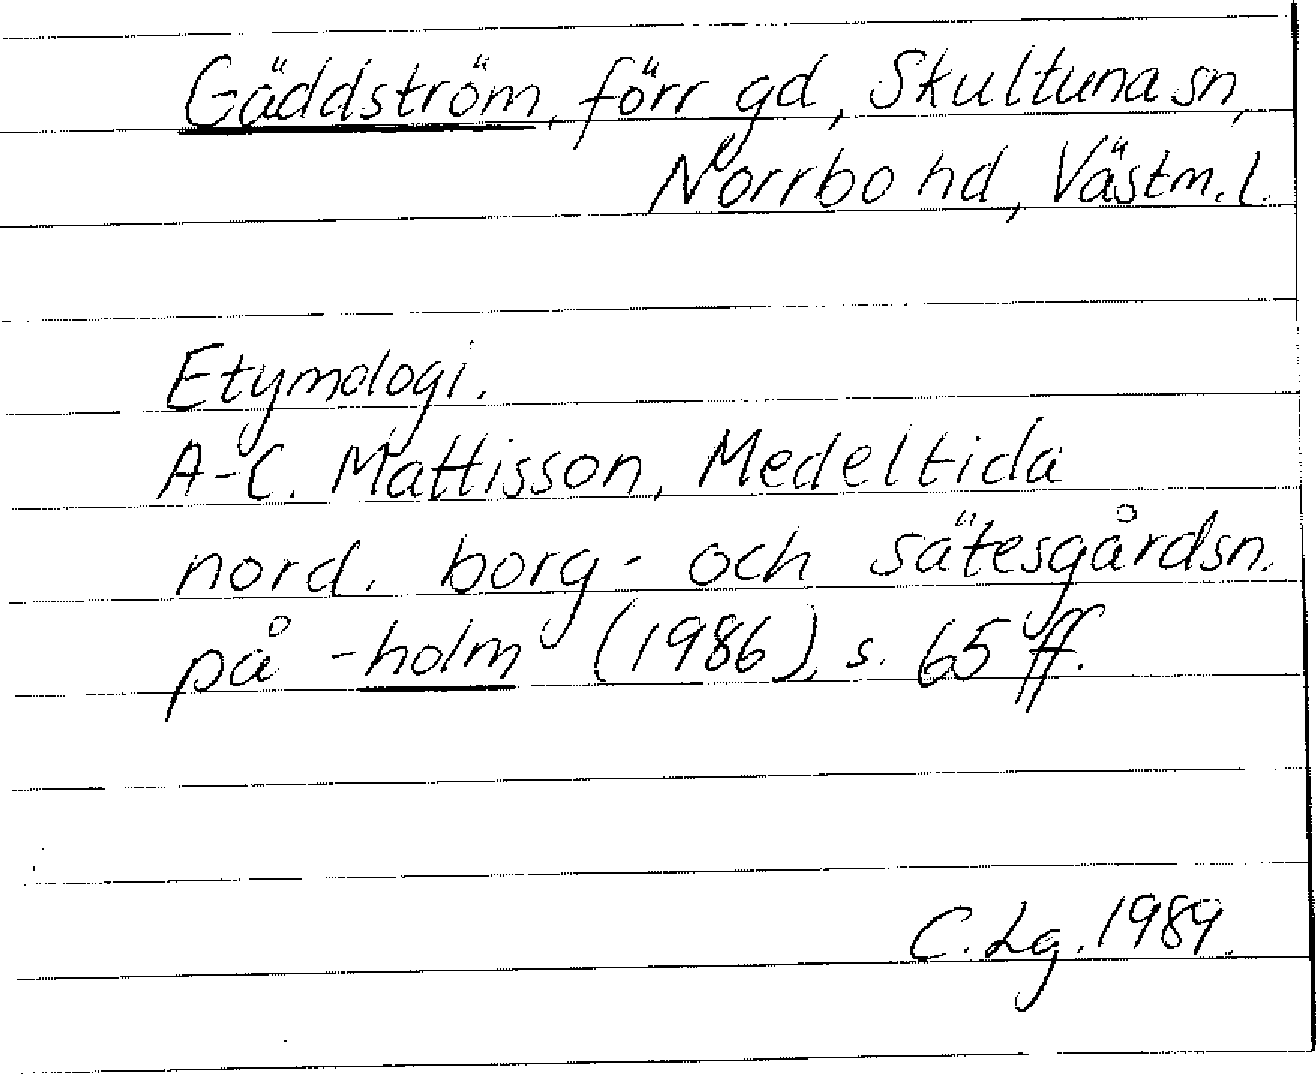 Gäddström, förr gd, Skultuna sn,
Norrbo hd, Västm. l.
Etymologi.
A-C. Mattisson, Medeltida
nord. borg- och sätesgårdsn.
på -holm (1986), s. 65 ff.
C. Lg. 1989.